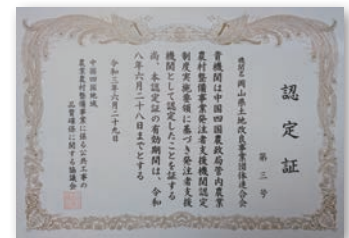 認定証
第三号
機関名 岡山県土地改良事業団体連合会
貴機関は中国四国農政局管内農業
農村整備事業発注者支援機関認定
制度実施要領に基づき発注者支援
機関として認定したことを証する
尚、本認定証の有効期間は、令和
八年六月二十八日までとする
令和三年六月二十九日
中国四国地域
農業農村整備事業に係る公共工事の
品質確保に関する協議会